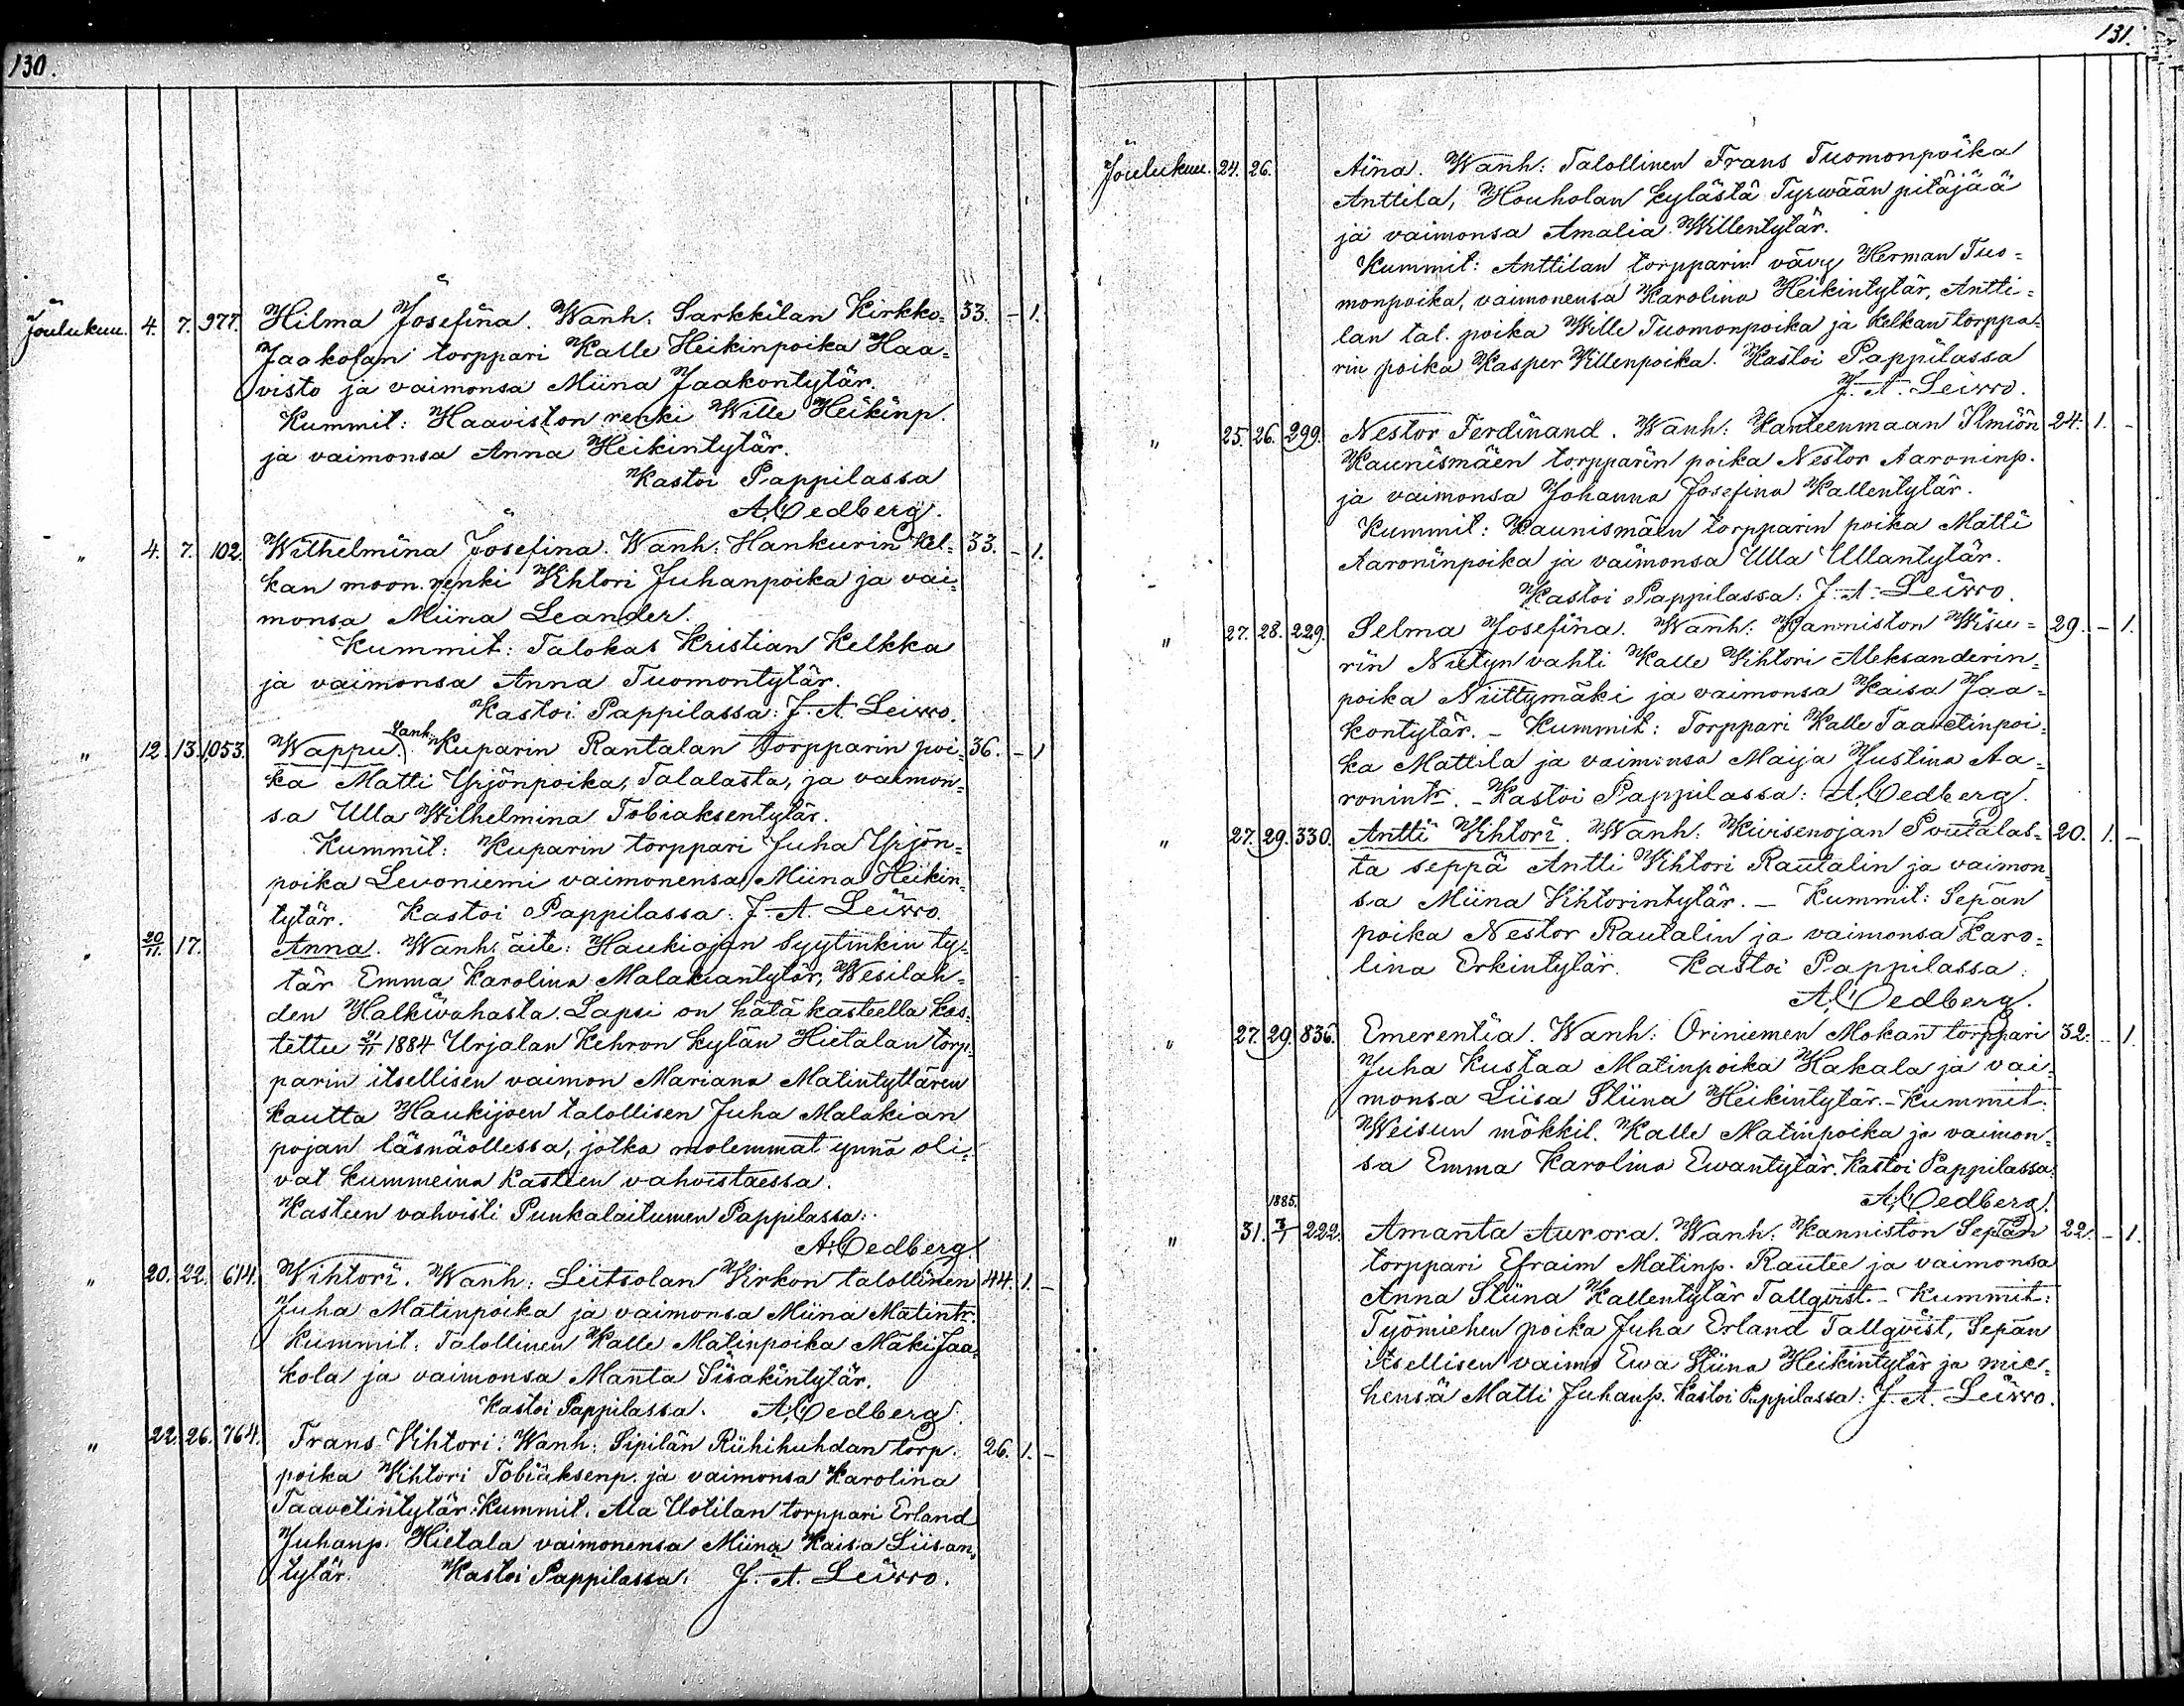 130.
Joulukuu. 4. 7. 977. Hilma Josefina. Wanh: Sarkkilan Kirkko= 33. – 1.
Jaakolan torppari Kalle Heikinpoika Haa=
visto ja vaimonsa Miina Jaakontytär.
Kummit: Haaviston renki Wille Heikinp.
ja vaimonsa Anna Heikintytär.
Kastoi Pappilassa
A. Cedberg.
" 4. 7. 102. Wilhelmina Josefina. Wanh: Hankurin Kel= 33. – 1.
kan moon. renki Vihtori Juhanpoika ja vai=
monsa Miina Leander.
Kummit: Talokas Kristian Kelkka
ja vaimonsa Anna Tuomontytär.
Kastoi Pappilassa: J. A. Leirro.
" 12. 13. 1,053. Wappu. Wanh: Kuparin Rantalan torpparin poi= 36. – 1
ka Matti Yrjönpoika, Talalasta, ja vaimon=
sa Ulla Wilhelmina Tobiaksentytär.
Kummit: Kuparin torppari Juha Yrjön=
poika Levoniemi vaimonensa Miina Heikin=
tytär. Kastoi Pappilassa: J. A. Leirro.
" 20/11. 17. Anna. Wanh. äite: Haukiojan Syytinkin ty=
tär Emma Karolina Malakiantytär, Wesilah=
den Halkivahasta. Lapsi on hätä kasteella kas=
tettu 21/11 1884 Urjalan Kehron kylän Hietalan torp=
parin itsellisen vaimon Mariana Matintyttären
kautta Haukijoen talollisen Juha Malakian
pojan läsnäollessa, jotka molemmat ynnä oli=
vat kummeina kasteen vahvistaessa.
Kasteen vahvisti Punkalaitumen Pappilassa:
A. Cedberg.
" 20. 22. 614. Wihtori. Wanh: Liitsolan Virkon talollinen 44. 1. –
Juha Matinpoika ja vaimonsa Miina Matintr.
Kummit: Talollinen Kalle Matinpoika Mäki Jaa=
kola ja vaimonsa Manta Iisakintytär.
Kastoi Pappilassa. A. Cedberg.
" 22. 26. 764. Frans Vihtori. Wanh: Sipilän Riihihuhdan torp. 26. 1. –
poika Vihtori Tobiaksenp. ja vaimonsa Karolina
Taavetintytär. Kummit. Ala Uotilan torppari Erland
Juhanp. Hietala vaimonensa Miina Kaisa Liisan=
tytär. Kastoi Pappilassa: J. A. Leirro.
131.
Joulukuu. 24. 26. Aina. Wanh: Talollinen Frans Tuomonpoika
Anttila, Houholan kylästä Tyrwään pitäjää
ja vaimonsa Amalia Willentytär.
Kummit: Anttilan torpparin vävy Herman Tuo=
monpoika, vaimonensa Karolina Heikintytär, Antti=
lan tal. poika Wille Tuomonpoika ja Kelkan torppa=
rin poika Kasper Villenpoika. Kastoi Pappilassa
J. A. Leirro.
" 25. 26. 299. Nestor Ferdinand. Wanh: Kanteenmaan Ilmiön 24. 1. –
Kaunismäen torpparin poika Nestor Aaroninp.
ja vaimonsa Johanna Josefina Kallentytär.
Kummit: Kaunismäen torpparin poika Matti
Aaroninpoika ja vaimonsa Ulla Ullantytär.
Kastoi Pappilassa: J. A. Leirro.
" 27. 28. 229. Selma Josefina. Wanh: Kanniston Wisu= 29. – 1.
rin Niityn vahti Kalle Vihtori Aleksanderin=
poika Niittymäki ja vaimonsa Kaisa Jaa=
kontytär. – Kummit: Torppari Kalle Taavetinpoi=
ka Mattila ja vaimonsa Maija Justina Aa=
ronintr. – Kastoi Pappilassa: A. Cedberg.
" 27. 29. 330. Antti Vihtori. Wanh: Kivisenojan Poutalas= 20. 1. –
ta seppä Antti Vihtori Rautalin ja vaimon=
sa Miina Vihtorintytär. – Kummit: Sepän
poika Nestor Rautalin ja vaimonsa Karo=
lina Erkintytär. Kastoi Pappilassa:
A. Cedberg.
" 27. 29. 836. Emerentia. Wanh: Oriniemen Mokan torppari 32. – 1.
Juha Kustaa Matinpoika Hakala ja vai=
monsa Liisa Stiina Heikintytär. – Kummit:
Weisun mökkil. Kalle Matinpoika ja vaimon=
sa Emma Karolina Ewantytär. Kastoi Pappilassa:
A. Cedberg.
1885.
" 31. 3/1 222. Amanta Aurora. Wanh: Kanniston Sepän 22. – 1.
torppari Efraim Matinp. Rautee ja vaimonsa
Anna Stiina Kallentytär Tallqvist. – Kummit:
Työmiehen poika Juha Erland Tallqvist, Sepän
itsellisen vaimo Ewa Stiina Heikintytär ja mie=
hensä Matti Juhanp. Kastoi Pappilassa: J. A. Leirro.